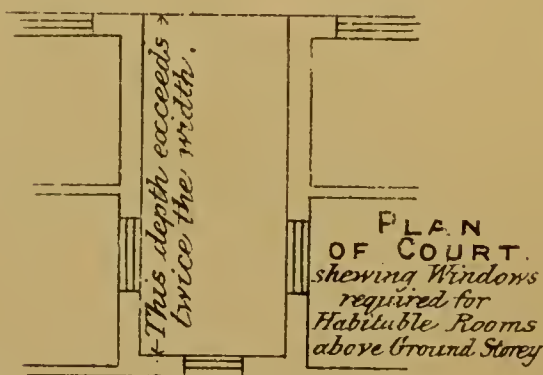 This depth exceeds
twice the width.
PLAN
OF COURT.
shewing Windows
required for
Habitable Rooms
above Ground Storey